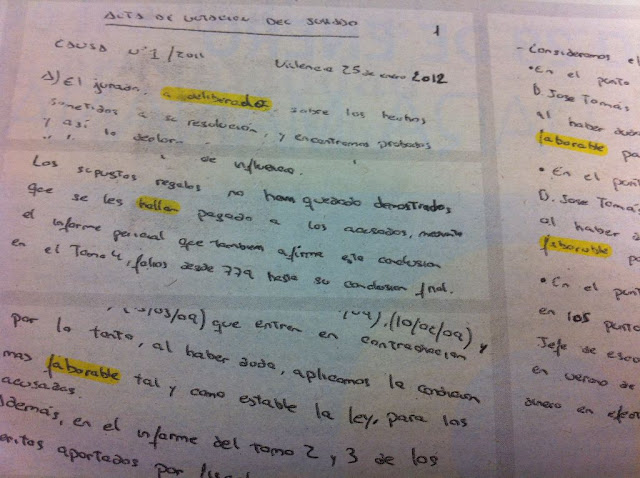 ACTA DE VOTACION DEL JURADO
1
CAUSA Nº 1/2011
Valencia 25 de enero 2012
A) El jurado, a deliberado sobre los hechos
sometidos a su resolución, y encontramos probados
y así lo declar
de influencia.
Los supuestos regalos no han quedado demostrados
que se les hallan pagado a los acusados, mediante
el informe pericial que tambien afirma esta conclusion
en el Tomo 4, folios desde 779 hasta su conclusion final.
/03/09) que entren en contradiccion
(10/06/09) y
por lo tanto, al haber duda, aplicamos la condicion
mas faborable tal y como estable la ley, para las
acusadas.
Además, en el informe del tomo 2 y 3 de los
eritos aportados por
- Consideramos el
• En el punto
D. Jose Tomás
al haber dud
faborable pa
• En el punt
D. Jose Tomá
al haber d
faborable p
• En el punt
en los punto
Jefe de esco
en verano de
dinero en efect